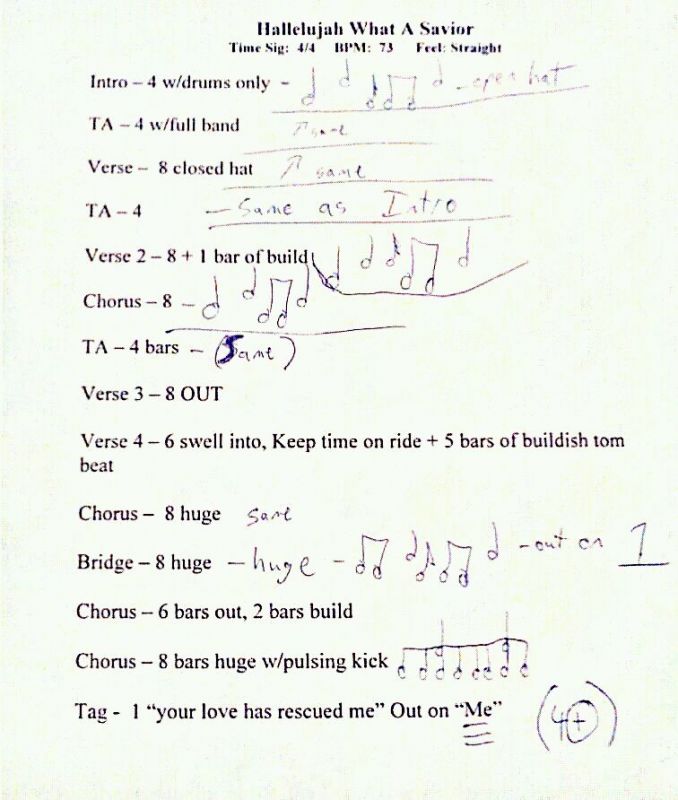 Hallelujah What A Savior
Time Sig: 4/4 BPM: 73 Feel: Straight
Intro – 4 w/drums only - - open hat
TA – 4 w/full band same
Verse – 8 closed hat same
TA – 4 – Same as Intro
Verse 2 – 8 + 1 bar of build
Chorus – 8 –
TA – 4 bars – (Same)
Verse 3 – 8 OUT
Verse 4 – 6 swell into, Keep time on ride + 5 bars of buildish tom
beat
Chorus – 8 huge same
Bridge – 8 huge – huge – - out on 1
Chorus – 6 bars out, 2 bars build
Chorus – 8 bars huge w/pulsing kick
Tag - 1 “your love has rescued me” Out on “Me” (4+)